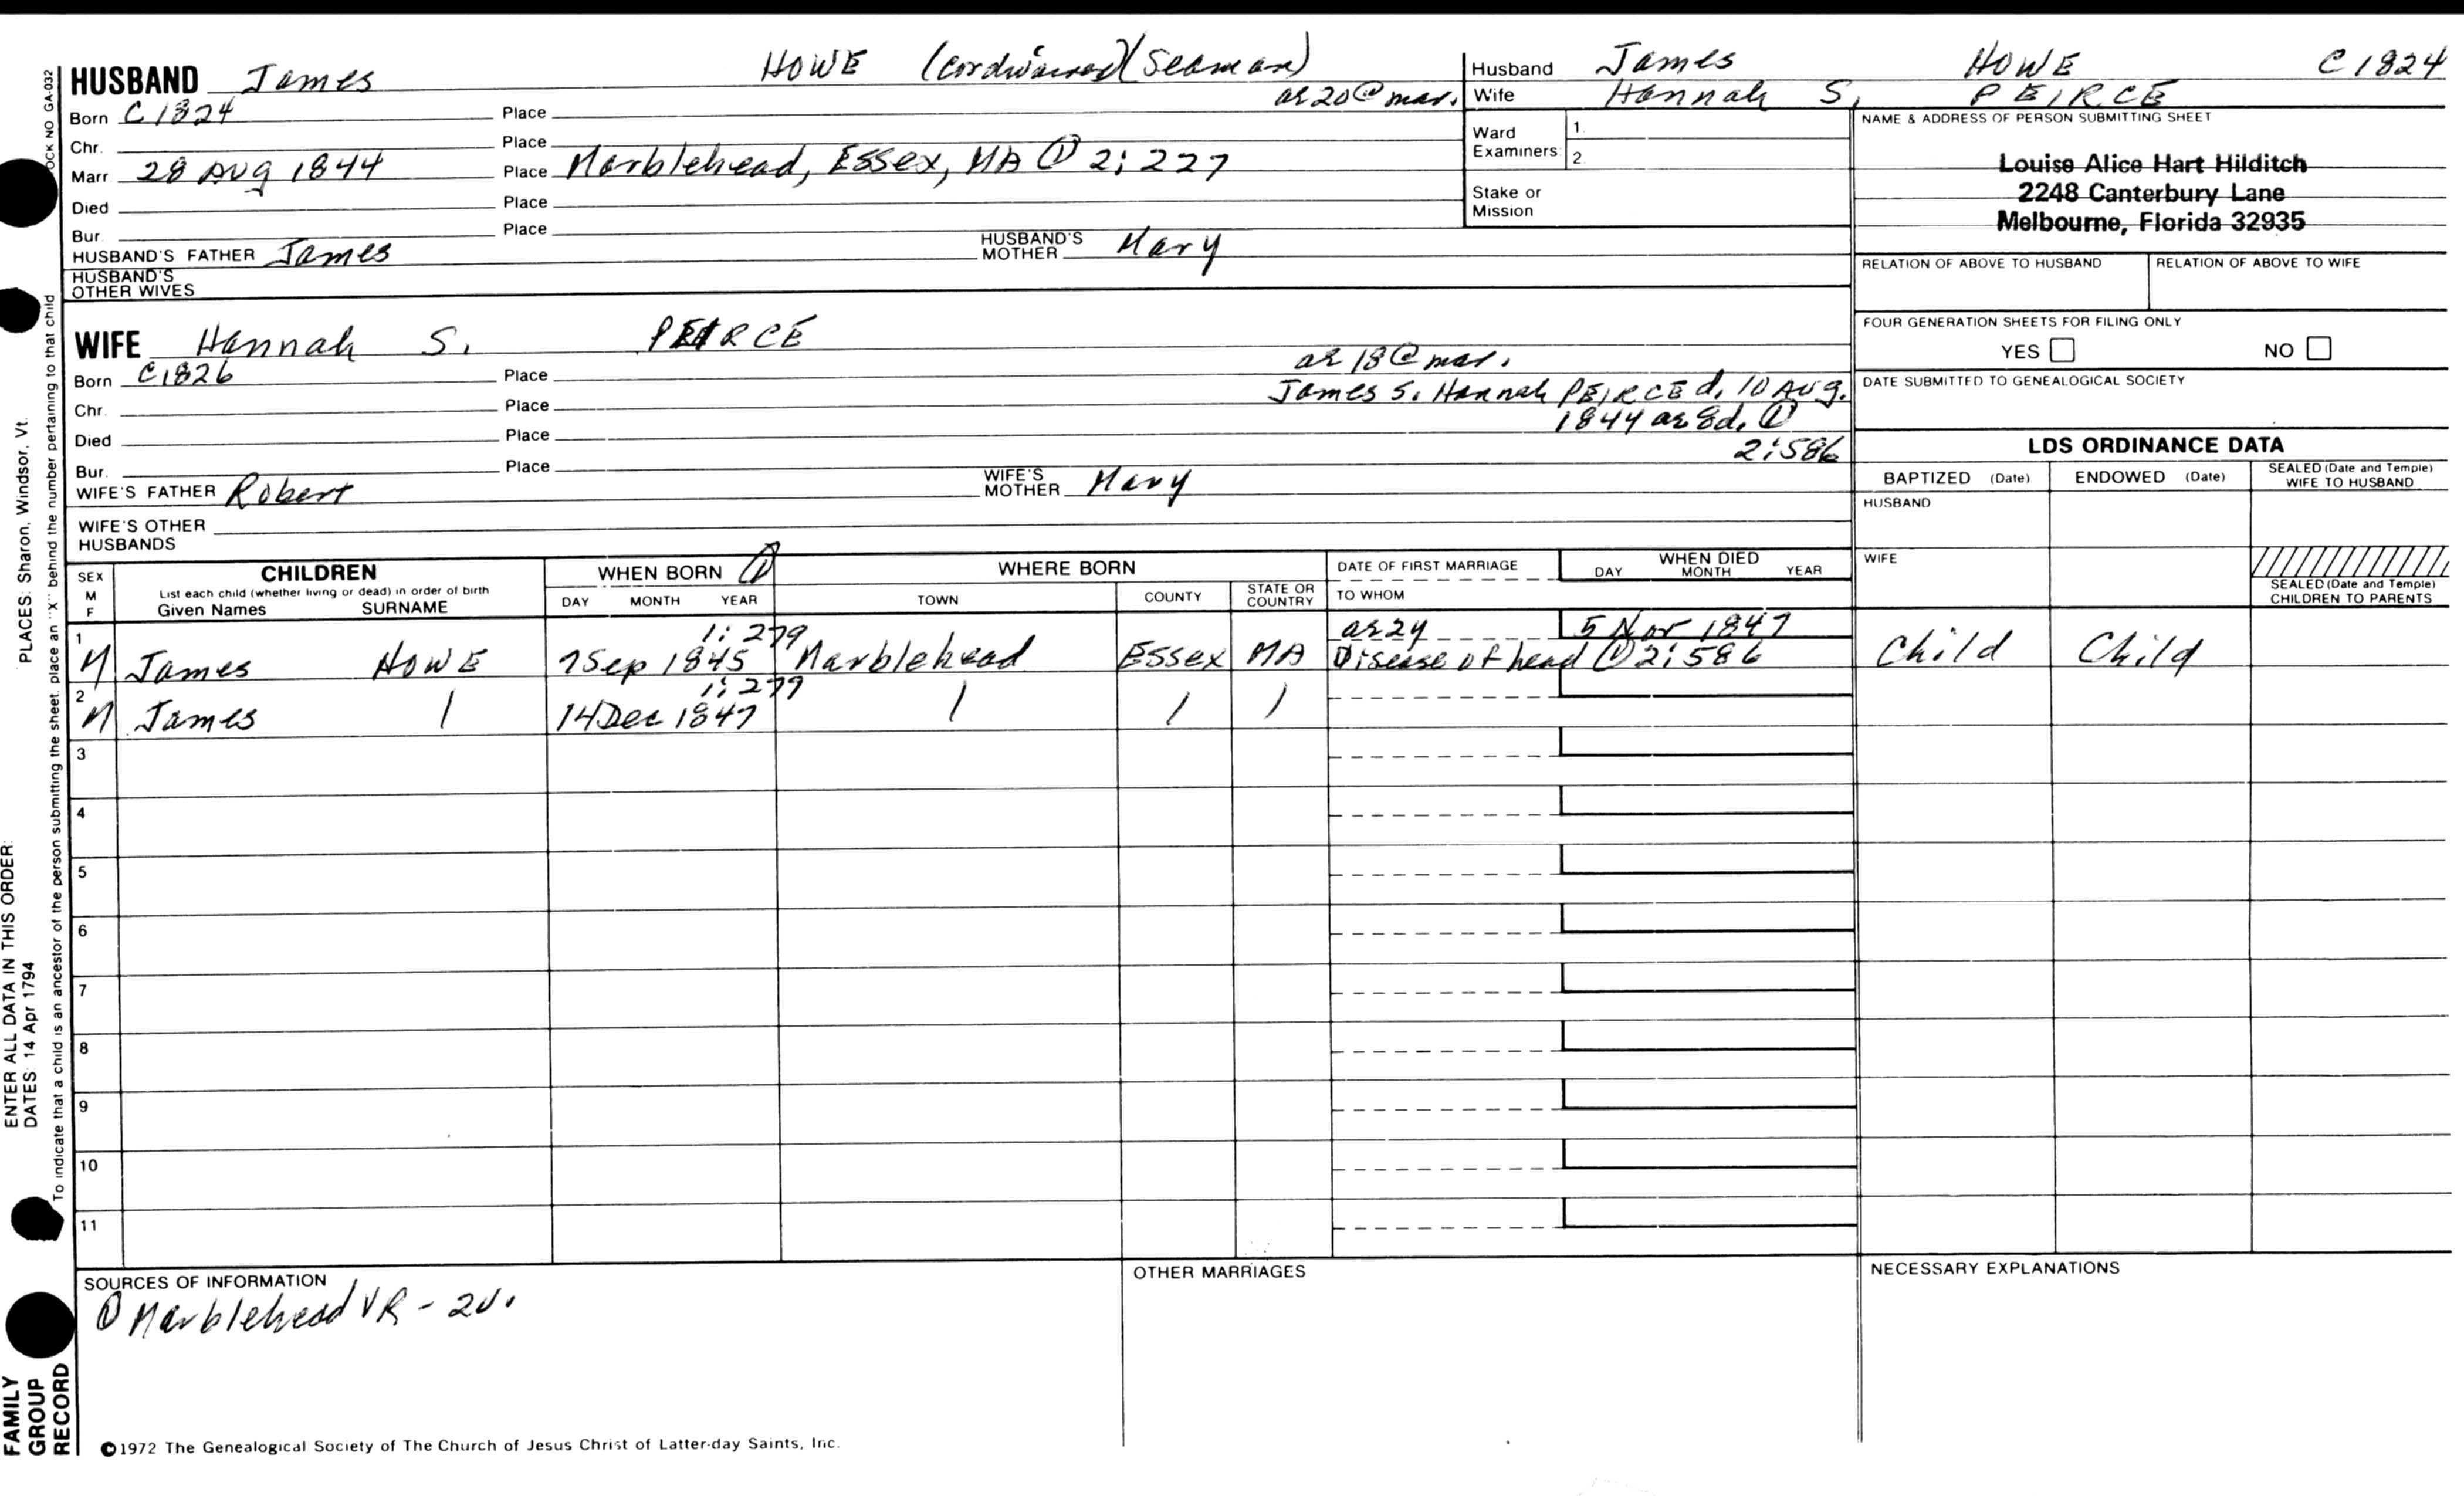 HUSBAND James HOWE (cordwainer) (Seaman)
ae 20 @ mar.
Born C 1824 Place
Chr. Place
Marr 28 AUG 1844 Place Marblehead, Essex, MA ① 2:227
Died Place
Bur. Place
HUSBAND'S FATHER James HUSBAND'S MOTHER Mary
HUSBAND'S OTHER WIVES
WIFE Hannah S. PEIRCE
ae 18 @ mar.
Born C 1826 Place
James S. Hannah PEIRCE d. 10 AUG.
Chr. Place
1844 ae 8d. ①
Died Place
2:586
Bur. Place
WIFE'S FATHER Robert WIFE'S MOTHER Mary
WIFE'S OTHER HUSBANDS
Husband James HOWE C 1824
Wife Hannah S. PEIRCE
Ward Examiners 1. 2.
Stake or Mission
NAME & ADDRESS OF PERSON SUBMITTING SHEET
Louise Alice Hart Hilditch
2248 Canterbury Lane
Melbourne, Florida 32935
RELATION OF ABOVE TO HUSBAND RELATION OF ABOVE TO WIFE
FOUR GENERATION SHEETS FOR FILING ONLY
YES NO
DATE SUBMITTED TO GENEALOGICAL SOCIETY
LDS ORDINANCE DATA
BAPTIZED (Date) ENDOWED (Date) SEALED (Date and Temple) WIFE TO HUSBAND
HUSBAND
WIFE
SEALED (Date and Temple) CHILDREN TO PARENTS
SEX M F
CHILDREN
List each child (whether living or dead) in order of birth
Given Names SURNAME
WHEN BORN ①
DAY MONTH YEAR
WHERE BORN
TOWN COUNTY STATE OR COUNTRY
DATE OF FIRST MARRIAGE
TO WHOM
WHEN DIED
DAY MONTH YEAR
1 1:279 ae 2y 5 Nov 1847
M James HOWE 7 Sep 1845 Marblehead Essex MA Disease of head ① 2:586 Child Child
2 1:279
M James / 14 Dec 1847 / / /
3
4
5
6
7
8
9
10
11
SOURCES OF INFORMATION
① Marblehead VR - 2v.
OTHER MARRIAGES
NECESSARY EXPLANATIONS
©1972 The Genealogical Society of The Church of Jesus Christ of Latter-day Saints, Inc.
OCK NO GA-032
To indicate that a child is an ancestor of the person submitting the sheet, place an "X" behind the number pertaining to that child
ENTER ALL DATA IN THIS ORDER:
DATES: 14 Apr 1794
PLACES: Sharon, Windsor, Vt.
FAMILY
GROUP
RECORD